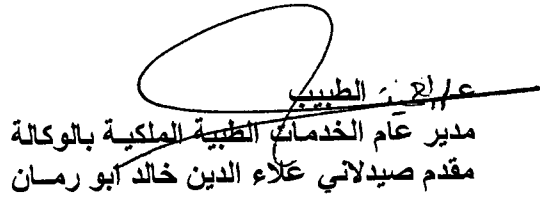 ع/العميد الطبيب
مدير عام الخدمات الطبية الملكية بالوكالة
مقدم صيدلاني علاء الدين خالد ابو رمان